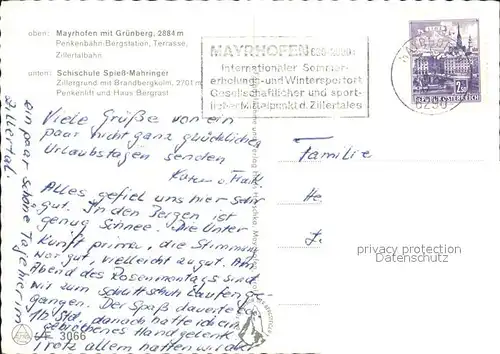 oben: Mayrhofen mit Grünberg, 2884 m
Penkenbahn-Bergstation, Terrasse,
Zillertalbahn
unten: Schischule Spieß-Mahringer
Zillergrund mit Brandbergkolm, 2701 m
Penkenlift und Haus Bergrast
MAYRHOFEN
Internationaler Sommer-
erholungs- und Wintersportort
Gesellschaftlicher und sport-
licher Mittelpunkt d. Zillertales
WIEN
2 S
REPUBLIK ÖSTERREICH
Viele Grüße von ein
paar nicht ganz glücklichen
Urlaubstagen senden
Karin u. Frank
Alles gefiel uns hier sehr
gut. In den Bergen ist
genug Schnee. Die Unter
kunft prima, die Stimmung
war gut, vielleicht zu gut. Am
Abend des Rosenmontags sind
wir zum Schlittschuhlaufen ge-
gangen. Der Spaß dauerte ca.
1/2 Std, danach hatte ich ein
gebrochenes Handgelenk.
Trotz allem hatten wir aber
ein paar schöne Tage hier im
Zillertal.
Familie
He
privacy protection
Datenschutz
3066